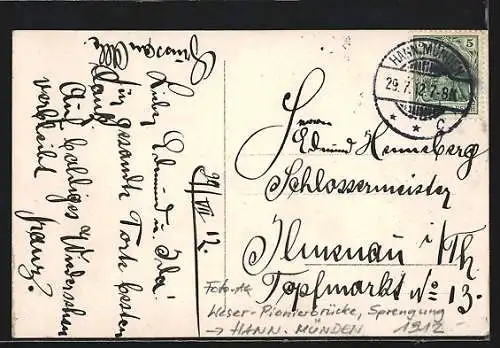 29/VII 12.
Lieber Edmund u. Ida!
für gesandte Torte besten
Dank.
Auf baldiges Wiedersehn
verbleibt
Franz.
Grüsse an Alle
HANN. MÜNDEN
29.7.12.7-8N.
* * c
5
Herrn
Edmund Henneberg
Schlossermeister
Ilmenau i/Th.
Topfmarkt No 13.
Foto-AK
Weser-Pionierbrücke, Sprengung
→ HANN. MÜNDEN 1912